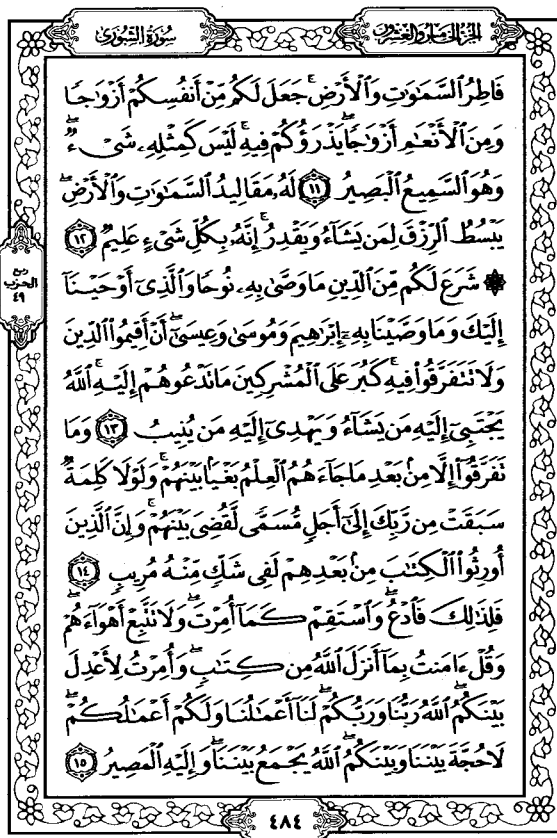 الجزء الخامس والعشرون
سورة الشورى
فَاطِرُ ٱلسَّمَٰوَٰتِ وَٱلْأَرْضِ ۚ جَعَلَ لَكُم مِّنْ أَنفُسِكُمْ أَزْوَٰجًا
وَمِنَ ٱلْأَنْعَٰمِ أَزْوَٰجًا ۖ يَذْرَؤُكُمْ فِيهِ ۚ لَيْسَ كَمِثْلِهِۦ شَىْءٌ ۖ
وَهُوَ ٱلسَّمِيعُ ٱلْبَصِيرُ ﴿١١﴾ لَهُۥ مَقَالِيدُ ٱلسَّمَٰوَٰتِ وَٱلْأَرْضِ ۖ
يَبْسُطُ ٱلرِّزْقَ لِمَن يَشَآءُ وَيَقْدِرُ ۚ إِنَّهُۥ بِكُلِّ شَىْءٍ عَلِيمٌ ﴿١٢﴾
۞ شَرَعَ لَكُم مِّنَ ٱلدِّينِ مَا وَصَّىٰ بِهِۦ نُوحًا وَٱلَّذِىٓ أَوْحَيْنَآ
إِلَيْكَ وَمَا وَصَّيْنَا بِهِۦٓ إِبْرَٰهِيمَ وَمُوسَىٰ وَعِيسَىٰٓ ۖ أَنْ أَقِيمُوا۟ ٱلدِّينَ
وَلَا تَتَفَرَّقُوا۟ فِيهِ ۚ كَبُرَ عَلَى ٱلْمُشْرِكِينَ مَا تَدْعُوهُمْ إِلَيْهِ ۚ ٱللَّهُ
يَجْتَبِىٓ إِلَيْهِ مَن يَشَآءُ وَيَهْدِىٓ إِلَيْهِ مَن يُنِيبُ ﴿١٣﴾ وَمَا
تَفَرَّقُوٓا۟ إِلَّا مِنۢ بَعْدِ مَا جَآءَهُمُ ٱلْعِلْمُ بَغْيًۢا بَيْنَهُمْ ۚ وَلَوْلَا كَلِمَةٌ
سَبَقَتْ مِن رَّبِّكَ إِلَىٰٓ أَجَلٍ مُّسَمًّى لَّقُضِىَ بَيْنَهُمْ ۚ وَإِنَّ ٱلَّذِينَ
أُورِثُوا۟ ٱلْكِتَٰبَ مِنۢ بَعْدِهِمْ لَفِى شَكٍّ مِّنْهُ مُرِيبٍ ﴿١٤﴾
فَلِذَٰلِكَ فَٱدْعُ ۖ وَٱسْتَقِمْ كَمَآ أُمِرْتَ ۖ وَلَا تَتَّبِعْ أَهْوَآءَهُمْ ۖ
وَقُلْ ءَامَنتُ بِمَآ أَنزَلَ ٱللَّهُ مِن كِتَٰبٍ ۖ وَأُمِرْتُ لِأَعْدِلَ
بَيْنَكُمُ ۖ ٱللَّهُ رَبُّنَا وَرَبُّكُمْ ۖ لَنَآ أَعْمَٰلُنَا وَلَكُمْ أَعْمَٰلُكُمْ ۖ
لَا حُجَّةَ بَيْنَنَا وَبَيْنَكُمُ ۖ ٱللَّهُ يَجْمَعُ بَيْنَنَا ۖ وَإِلَيْهِ ٱلْمَصِيرُ ﴿١٥﴾
ربع
الحزب
٤٩
٤٨٤